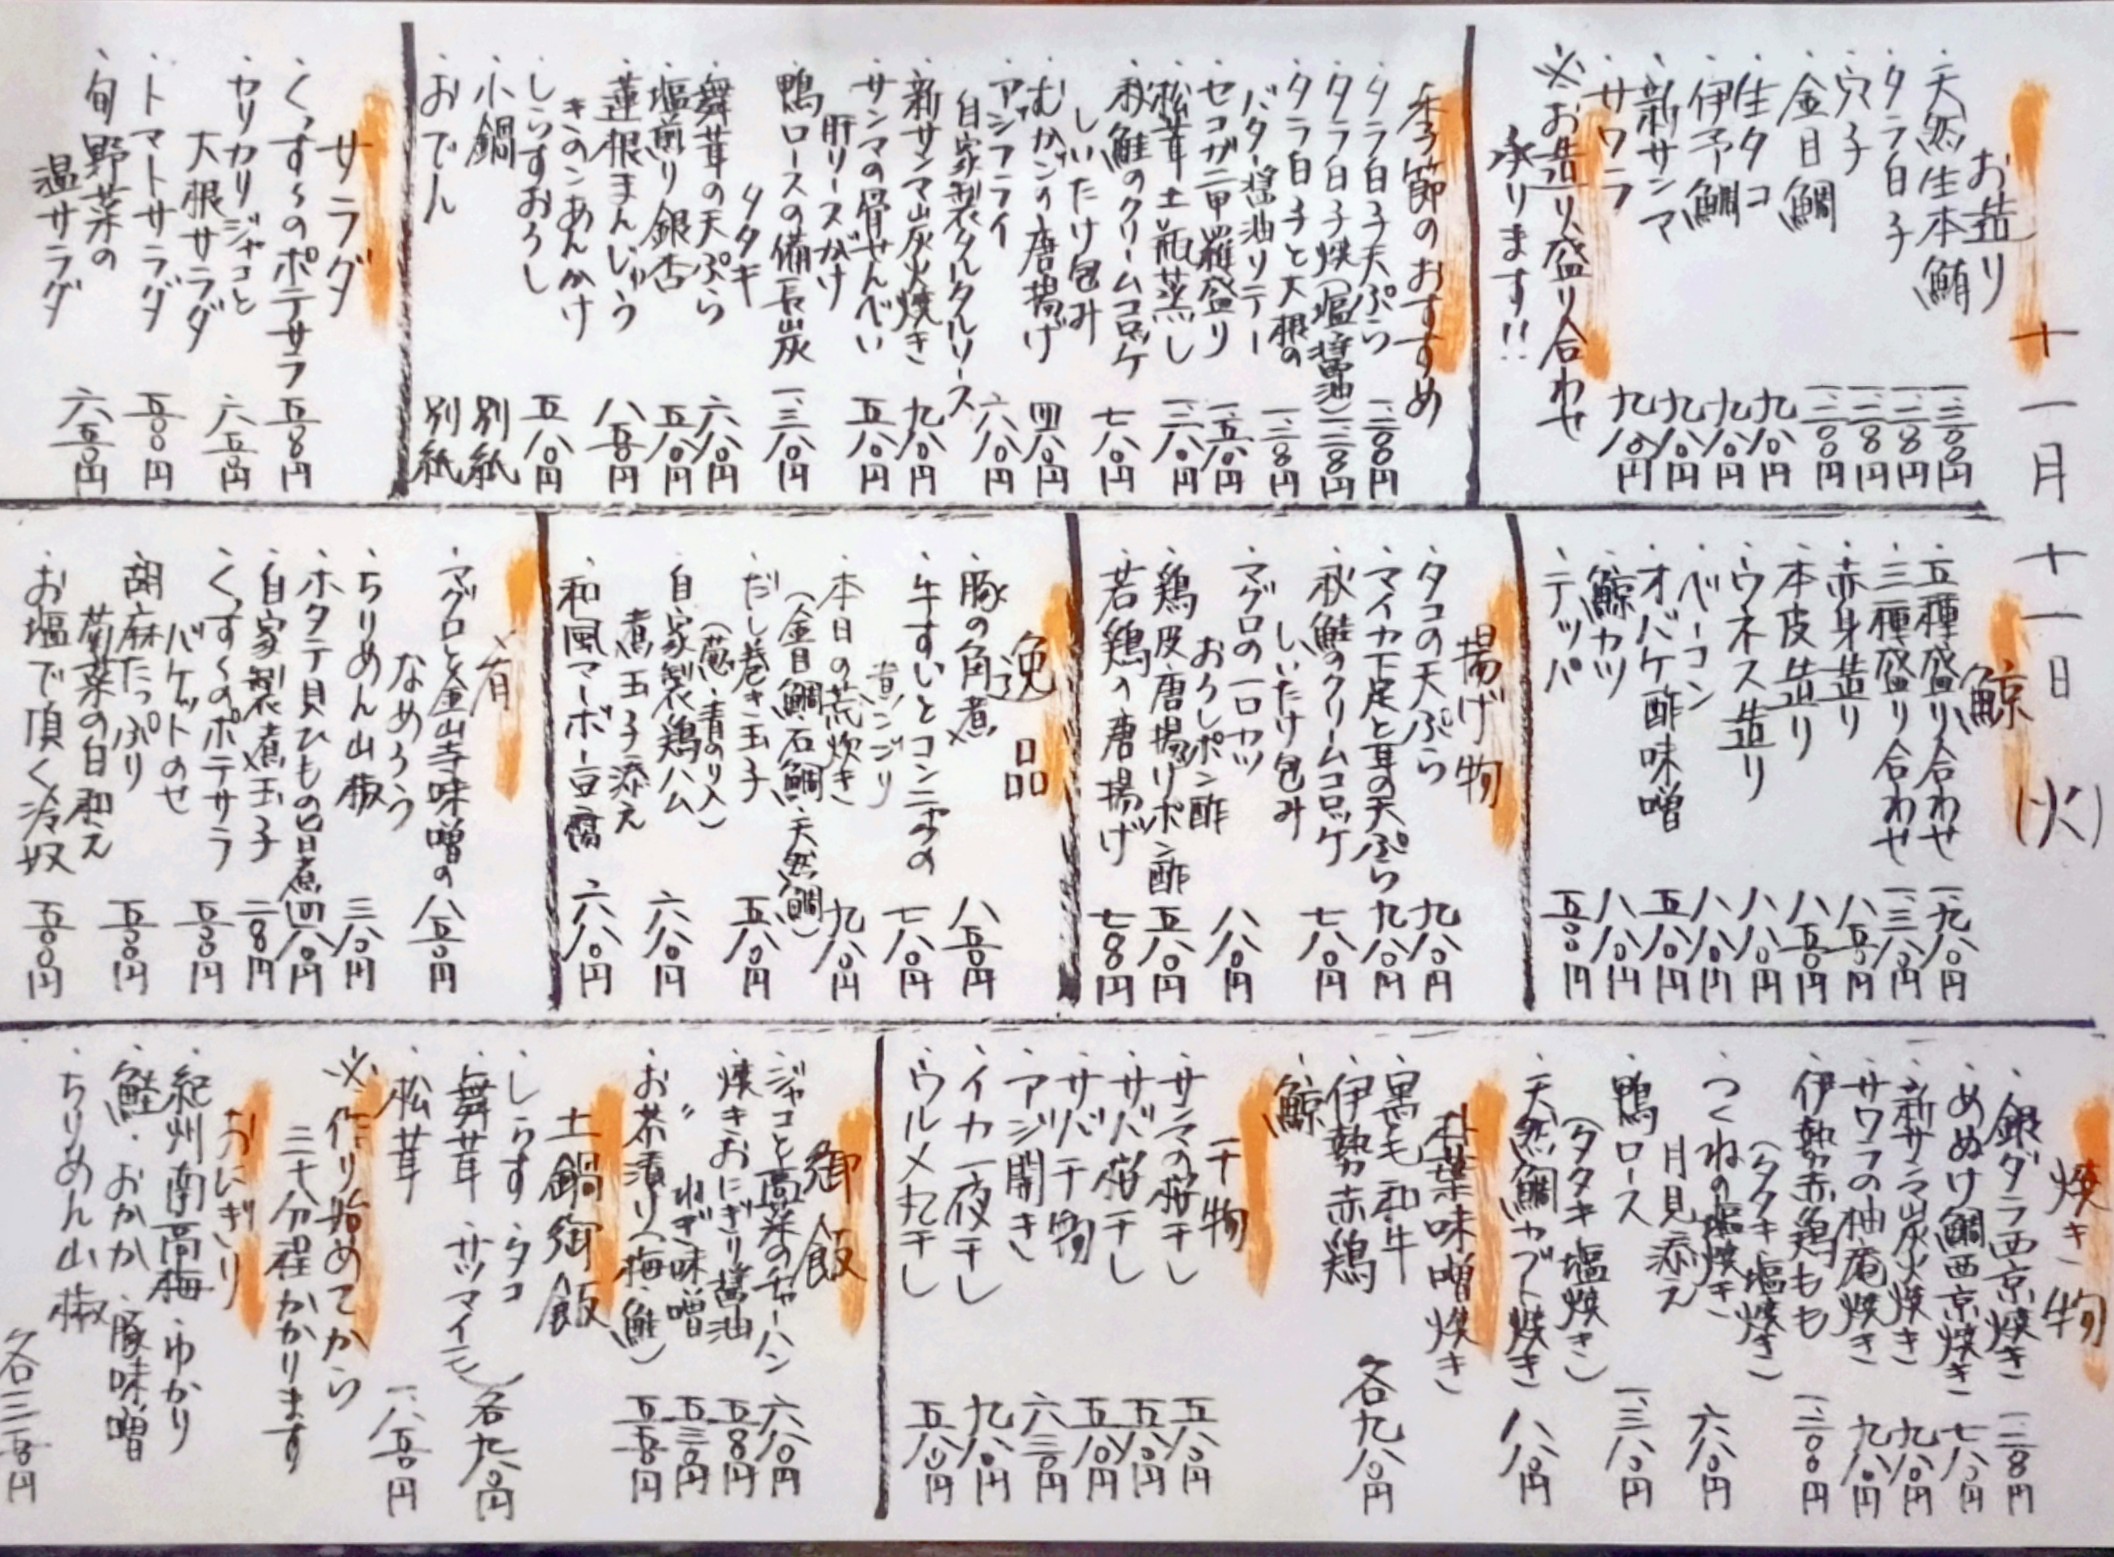 十一月十一日(火)
お造り
・天然生本鮪 一、三〇〇円
・タラ白子
・穴子
・金目鯛
・生タコ 九八〇円
・伊予鯛 九八〇円
・新サンマ 九八〇円
・サワラ 九八〇円
※お造り盛り合わせ
承ります!!
季節のおすすめ
・タラ白子天ぷら
・タラ白子焼(塩・醤油)
・タラ白子と大根の
バター醤油ソテー
・セコガニ甲羅盛り 一、五八〇円
・松茸土瓶蒸し
・秋鮭のクリームコロッケ
しいたけ包み 七八〇円
・むかごの唐揚げ 四八〇円
・アジフライ
自家製タルタルソース 六八〇円
・新サンマ炭火焼き 九八〇円
・サンマの骨せんべい 五八〇円
肝ソースがけ
・鴨ロースの備長炭 一、三八〇円
タタキ
・舞茸の天ぷら 六八〇円
・塩煎り銀杏 五八〇円
・蓮根まんじゅう
きのこあんかけ 八五〇円
・しらすおろし 五八〇円
・小鍋 別紙
・おでん 別紙
サラダ
・くっすぅのポテサラ
・カリカリジャコと
大根サラダ 六五〇円
・トマトサラダ 五〇〇円
・旬野菜の
温サラダ 六五〇円
鯨
・五種盛り合わせ 一、九八〇円
・三種盛り合わせ 一、三八〇円
・赤身造り 八五〇円
・本皮造り 八五〇円
・ウネス造り 八八〇円
・ベーコン 八八〇円
・オバケ酢味噌 五八〇円
・鯨カツ 八八〇円
・テッパ 五〇〇円
揚げ物
・タコの天ぷら 九八〇円
・マイカ下足と耳の天ぷら 九八〇円
・秋鮭のクリームコロッケ
しいたけ包み 七八〇円
・マグロの一口カツ
おろしポン酢 八八〇円
・鶏皮唐揚げポン酢 五八〇円
・若鶏の唐揚げ
逸品
・豚の角煮 八五〇円
・牛すいとコンニャクの
煮こごり 七八〇円
・本日の荒炊き 九八〇円
(金目鯛・石鯛・天然鯛)
・だし巻き玉子 五八〇円
(葱・青のり入)
・自家製鶏ハム 六八〇円
煮玉子添え
・和風マーボー豆腐 六八〇円
肴
・マグロと金山寺味噌の
なめろう 八五〇円
・ちりめん山椒 三八〇円
・ホタテ貝ひもの旨煮 四八〇円
・自家製煮玉子
・くっすぅのポテサラ
バゲットのせ 五〇〇円
・胡麻たっぷり
菊菜の白和え 五〇〇円
・お塩で頂く冷奴 五〇〇円
焼き物
・銀ダラ西京焼き
・めぬけ鯛西京焼き 七八〇円
・新サンマ炭火焼き 九八〇円
・サワラの柚庵焼き 九八〇円
・伊勢赤鶏もも
(タタキ・塩焼き)
・つくねの塩焼き
月見添え 六八〇円
・鴨ロース 一、三八〇円
(タタキ・塩焼き)
・天然鯛カブト焼き 八八〇円
朴葉味噌焼き
・黒毛和牛
・伊勢赤鶏 各九八〇円
・鯨
干物
・サンマの桜干し 五八〇円
・サバ桜干し 五八〇円
・サバ干物 五八〇円
・アジ開き 六三〇円
・イカ一夜干し 九八〇円
・ウルメ丸干し 五八〇円
御飯
・ジャコと高菜のチャーハン 六八〇円
・焼きおにぎり醤油
・〃 ねぎ味噌
・お茶漬け(梅・鮭) 五五〇円
土鍋御飯
・しらす・タコ
・舞茸・サツマイモ 各九八〇円
・松茸 一、八五〇円
※作り始めてから
三十分程かかります
おにぎり
・紀州南高梅・ゆかり
・鮭・おかか・豚味噌
・ちりめん山椒